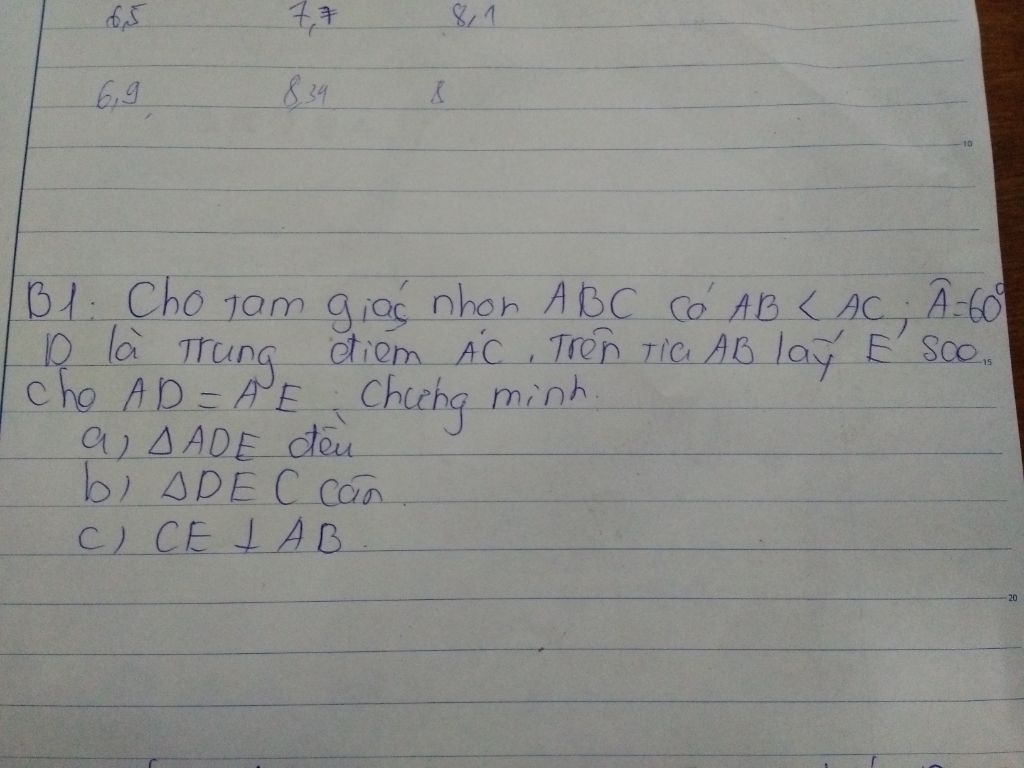 6,5 7,7 8,1
6,9 8,34 8
10
B1: Cho tam giác nhọn ABC có AB < AC; Â=60°
D là trung điểm AC. Trên tia AB lấy E sao
15
cho AD = AE. Chứng minh.
a) ΔADE đều
b) ΔDEC cân
c) CE ⊥ AB.
20